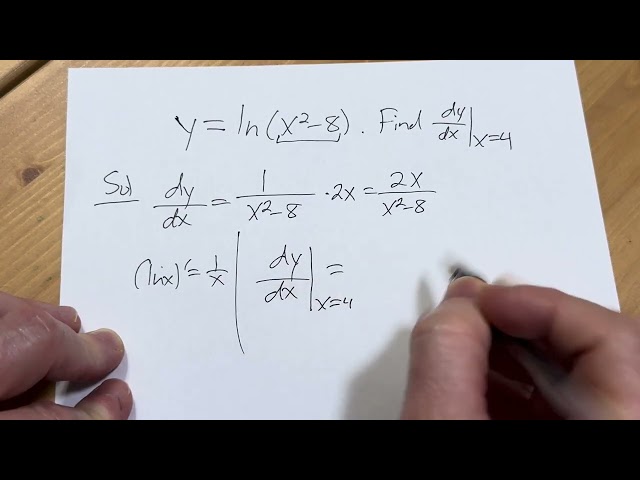 y = ln(x²-8). Find dy/dx|x=4
Sol dy/dx = 1/(x²-8) · 2x = 2x/(x²-8)
(lnx)' = 1/x | dy/dx|x=4 =